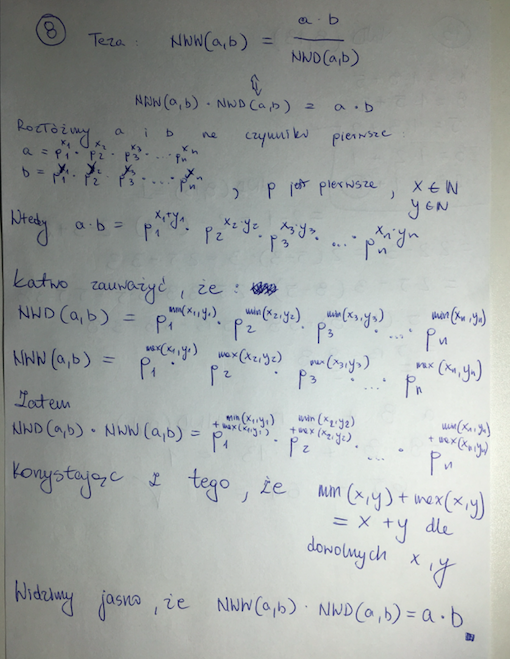 8 Teza: NWW(a,b) = a·b / NWD(a,b)
⇕
NWW(a,b) · NWD(a,b) = a·b
Rozłóżmy a i b na czynniki pierwsze:
a = p₁^x₁ · p₂^x₂ · p₃^x₃ · ... · pₙ^xₙ
b = p₁^y₁ · p₂^y₂ · p₃^y₃ · ... · pₙ^yₙ
, p jest pierwsze, x ∈ ℕ
y ∈ ℕ
Wtedy a·b = p₁^x₁+y₁ · p₂^x₂·y₂ · p₃^x₃·y₃ · ... · pₙ^xₙ·yₙ
Łatwo zauważyć, że:
NWD(a,b) = p₁^min(x₁,y₁) · p₂^min(x₂,y₂) · p₃^min(x₃,y₃) · ... · pₙ^min(xₙ,yₙ)
NWW(a,b) = p₁^max(x₁,y₁) · p₂^max(x₂,y₂) · p₃^max(x₃,y₃) · ... · pₙ^max(xₙ,yₙ)
Zatem
NWD(a,b) · NWW(a,b) = p₁^min(x₁,y₁)+max(x₁,y₁) · p₂^min(x₂,y₂)+max(x₂,y₂) · ... · pₙ^min(xₙ,yₙ)+max(xₙ,yₙ)
Korzystając z tego, że min(x,y) + max(x,y)
= x + y dla
dowolnych x, y
Widzimy jasno, że NWW(a,b) · NWD(a,b) = a·b